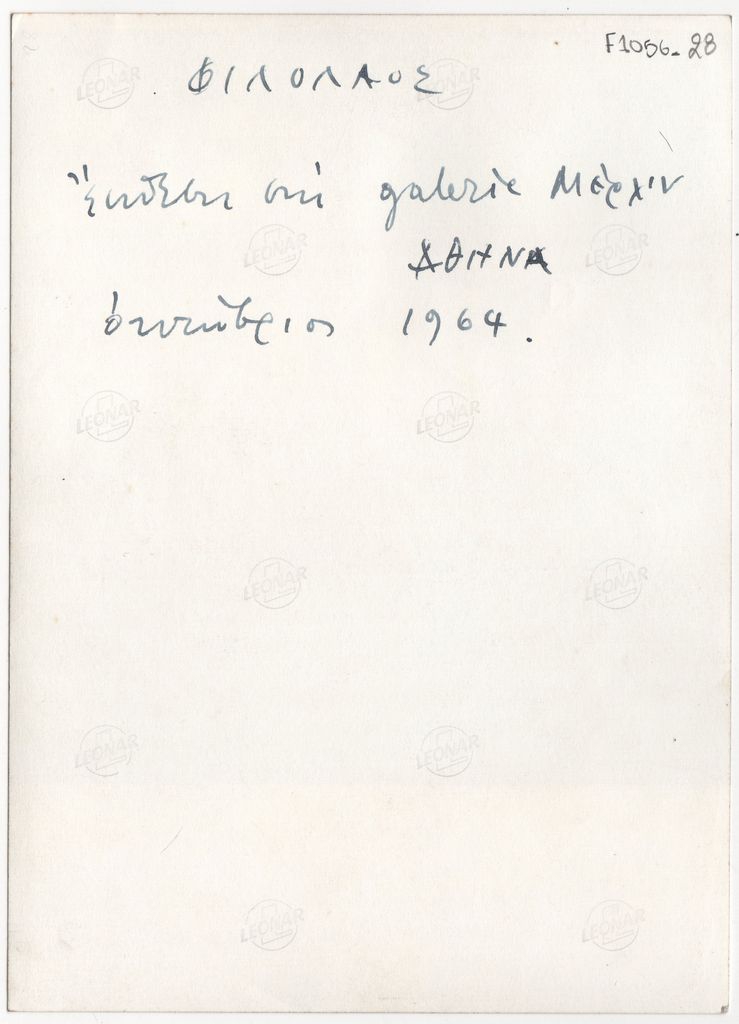 F1056-28
ΦΙΛΟΛΑΟΣ
Ἔκθεση στή galerie Μέρλιν
ΑΘΗΝΑ
ὀκτώβριος 1964.
LEONAR
LEONAR
LEONAR
LEONAR
LEONAR
LEONAR
LEONAR
LEONAR
LEONAR
LEONAR
LEONAR
LEONAR